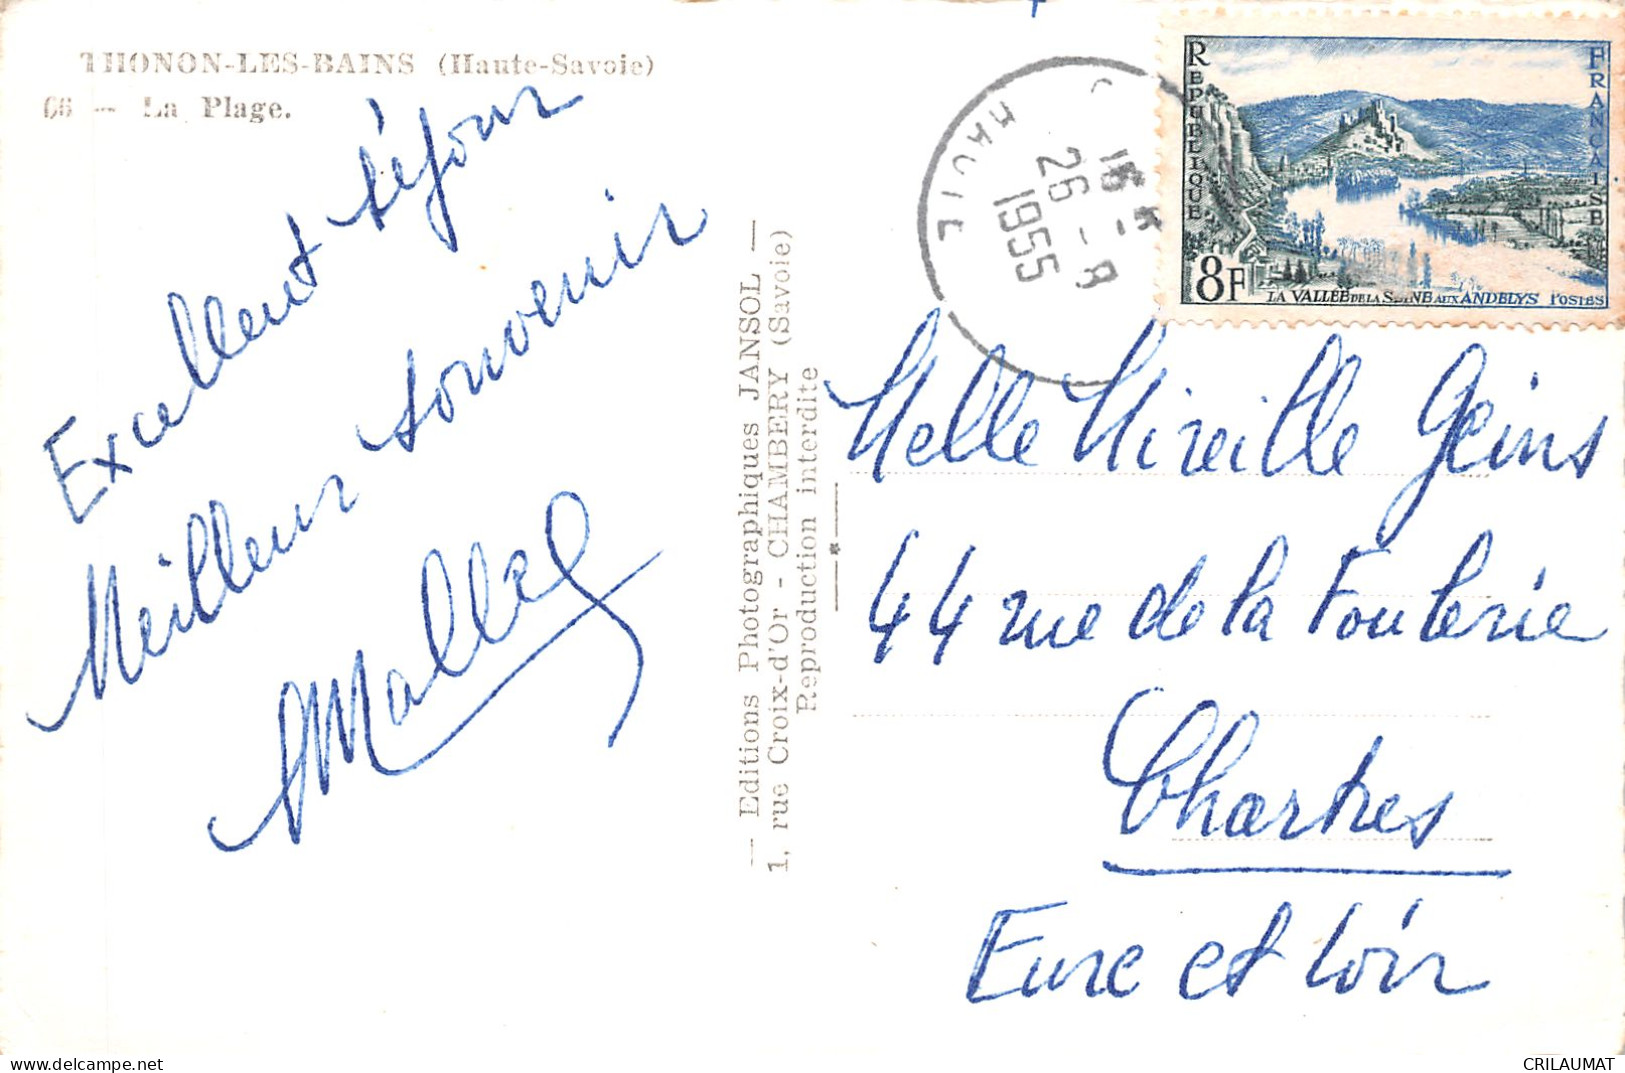 THONON-LES-BAINS (Haute-Savoie)
66 — La Plage.
Excellent séjour
Meilleur souvenir
— Editions Photographiques JANSOL —
1, rue Croix-d'Or - CHAMBERY (Savoie)
Reproduction interdite
16 -
26 - 8
1955
REPUBLIQUE
FRANCAISE
8F
LA VALLÉE DE LA SEINE AUX ANDELYS POSTES
Melle Mireille Geins
44 rue de la Foulerie
Chartres
Eure et Loir
www.delcampe.net
CRILAUMAT